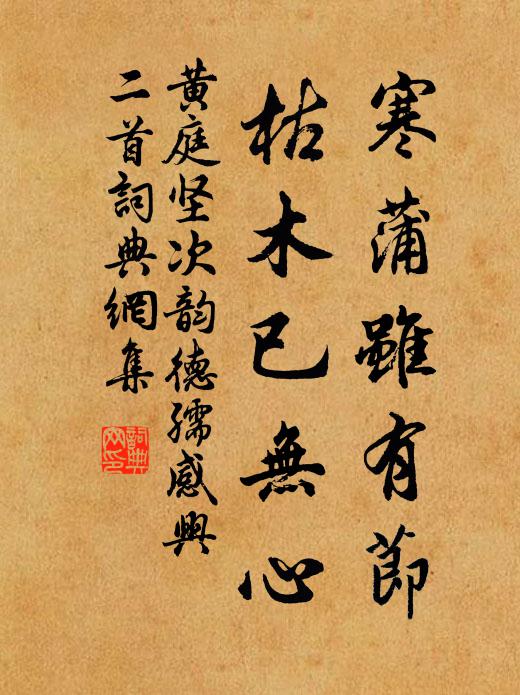 寒蒲雖有節
枯木已無心
黄庭坚次韵德孺感興
二首詞典網集
詞典
网印